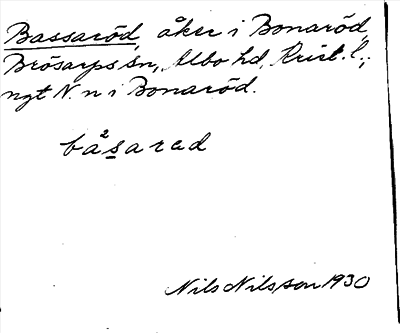 Bassaröd, åker i Bonaröd,
Brösarps sn, Albo hd, Krist. l.;
ngt N. n i Bonaröd.
bå²sarad
Nils Nilsson 1930